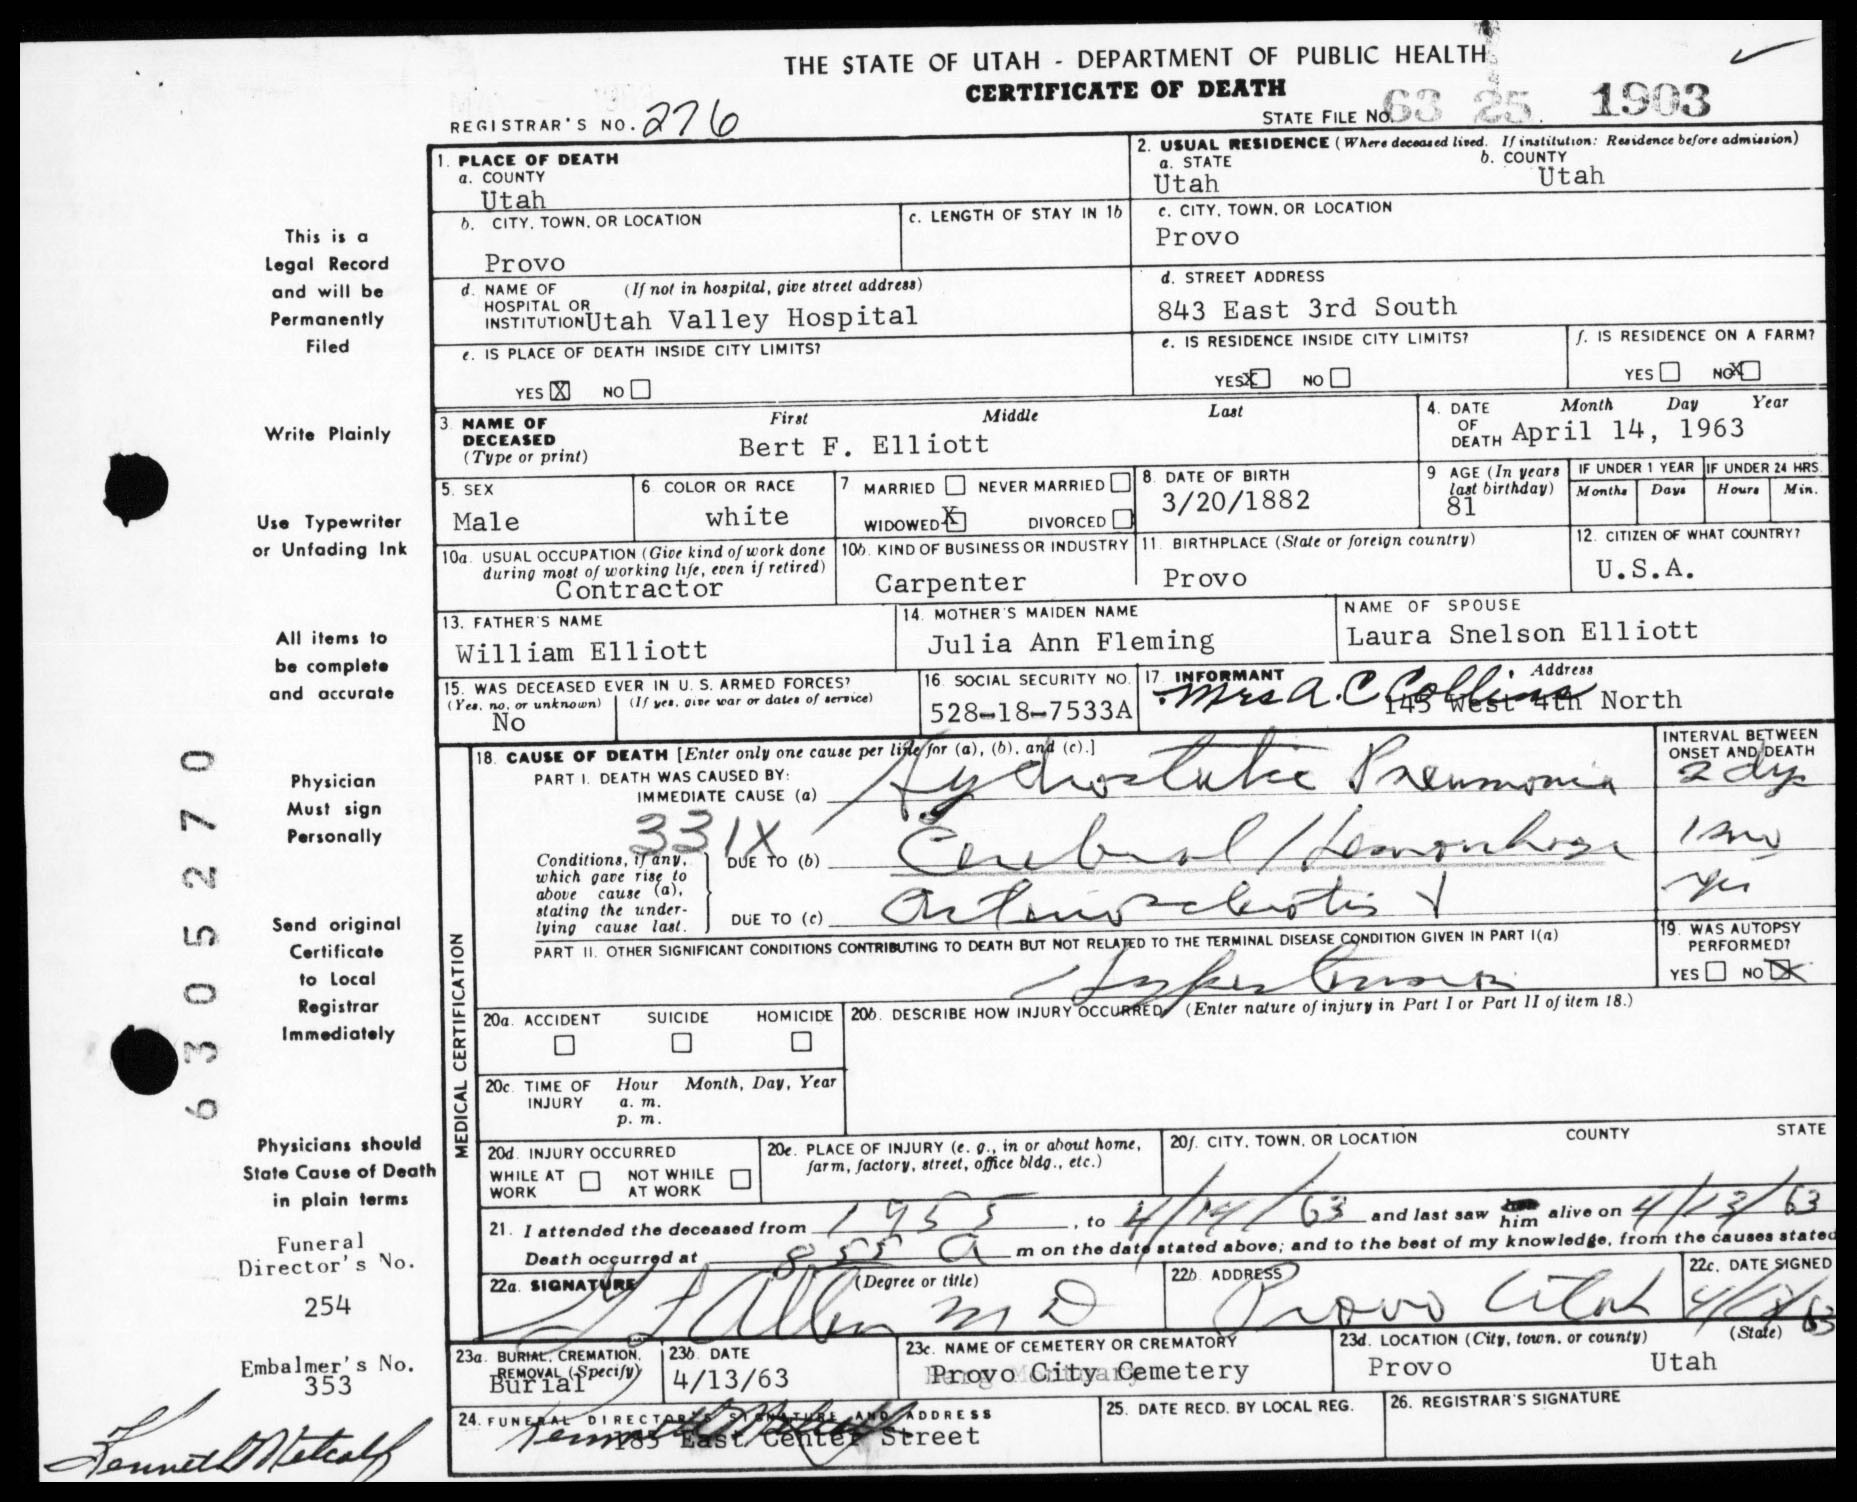 THE STATE OF UTAH - DEPARTMENT OF PUBLIC HEALTH
CERTIFICATE OF DEATH
REGISTRAR'S NO. 276
STATE FILE NO. 63 25 1903
1. PLACE OF DEATH
a. COUNTY
Utah
2. USUAL RESIDENCE (Where deceased lived. If institution: Residence before admission)
a. STATE b. COUNTY
Utah Utah
b. CITY, TOWN, OR LOCATION
Provo
c. LENGTH OF STAY IN 1b
c. CITY, TOWN, OR LOCATION
Provo
d. NAME OF (If not in hospital, give street address)
HOSPITAL OR
INSTITUTION Utah Valley Hospital
d. STREET ADDRESS
843 East 3rd South
e. IS PLACE OF DEATH INSIDE CITY LIMITS?
YES X NO
e. IS RESIDENCE INSIDE CITY LIMITS?
YES X NO
f. IS RESIDENCE ON A FARM?
YES NO X
3. NAME OF DECEASED (Type or print)
First Middle Last
Bert F. Elliott
4. DATE OF DEATH
Month Day Year
April 14, 1963
5. SEX
Male
6. COLOR OR RACE
white
7 MARRIED NEVER MARRIED
WIDOWED X DIVORCED
8. DATE OF BIRTH
3/20/1882
9 AGE (In years last birthday)
81
IF UNDER 1 YEAR
Months Days
IF UNDER 24 HRS.
Hours Min.
10a. USUAL OCCUPATION (Give kind of work done
during most of working life, even if retired)
Contractor
10b. KIND OF BUSINESS OR INDUSTRY
Carpenter
11. BIRTHPLACE (State or foreign country)
Provo
12. CITIZEN OF WHAT COUNTRY?
U.S.A.
13. FATHER'S NAME
William Elliott
14. MOTHER'S MAIDEN NAME
Julia Ann Fleming
NAME OF SPOUSE
Laura Snelson Elliott
15. WAS DECEASED EVER IN U. S. ARMED FORCES?
(Yes, no, or unknown) (If yes, give war or dates of service)
No
16. SOCIAL SECURITY NO.
528-18-7533A
17. INFORMANT Address
Mrs A. C Collins 145 West 4th North
MEDICAL CERTIFICATION
18. CAUSE OF DEATH [Enter only one cause per line for (a), (b), and (c).]
PART I. DEATH WAS CAUSED BY:
IMMEDIATE CAUSE (a) Hydrostatic Pneumonia
331X
Conditions, if any,
which gave rise to
above cause (a),
stating the under-
lying cause last.
DUE TO (b) Cerebral Hemorrhage
DUE TO (c) Arteriosclerotis
INTERVAL BETWEEN
ONSET AND DEATH
2 dys
1 mo
yr
PART II. OTHER SIGNIFICANT CONDITIONS CONTRIBUTING TO DEATH BUT NOT RELATED TO THE TERMINAL DISEASE CONDITION GIVEN IN PART I(a)
Hypertension
19. WAS AUTOPSY
PERFORMED?
YES NO X
20a. ACCIDENT SUICIDE HOMICIDE
20b. DESCRIBE HOW INJURY OCCURRED (Enter nature of injury in Part I or Part II of item 18.)
20c. TIME OF INJURY
Hour Month, Day, Year
a. m.
p. m.
20d. INJURY OCCURRED
WHILE AT WORK NOT WHILE AT WORK
20e. PLACE OF INJURY (e. g., in or about home,
farm, factory, street, office bldg., etc.)
20f. CITY, TOWN, OR LOCATION COUNTY STATE
21. I attended the deceased from 1955, to 4/14/63 and last saw him alive on 4/13/63
Death occurred at 855 a m on the date stated above; and to the best of my knowledge, from the causes stated
22a. SIGNATURE (Degree or title)
Allen M D
22b. ADDRESS
Provo Utah
22c. DATE SIGNED
63
23a. BURIAL, CREMATION, REMOVAL (Specify)
Burial
23b. DATE
4/13/63
23c. NAME OF CEMETERY OR CREMATORY
Provo City Cemetery
23d. LOCATION (City, town, or county) (State)
Provo Utah
24. FUNERAL DIRECTOR'S SIGNATURE AND ADDRESS
Kenneth Metcalf
185 East Center Street
25. DATE RECD. BY LOCAL REG.
26. REGISTRAR'S SIGNATURE
This is a
Legal Record
and will be
Permanently
Filed
Write Plainly
Use Typewriter
or Unfading Ink
All items to
be complete
and accurate
Physician
Must sign
Personally
Send original
Certificate
to Local
Registrar
Immediately
Physicians should
State Cause of Death
in plain terms
Funeral
Director's No.
254
Embalmer's No.
353
Kenneth Metcalf
6305270